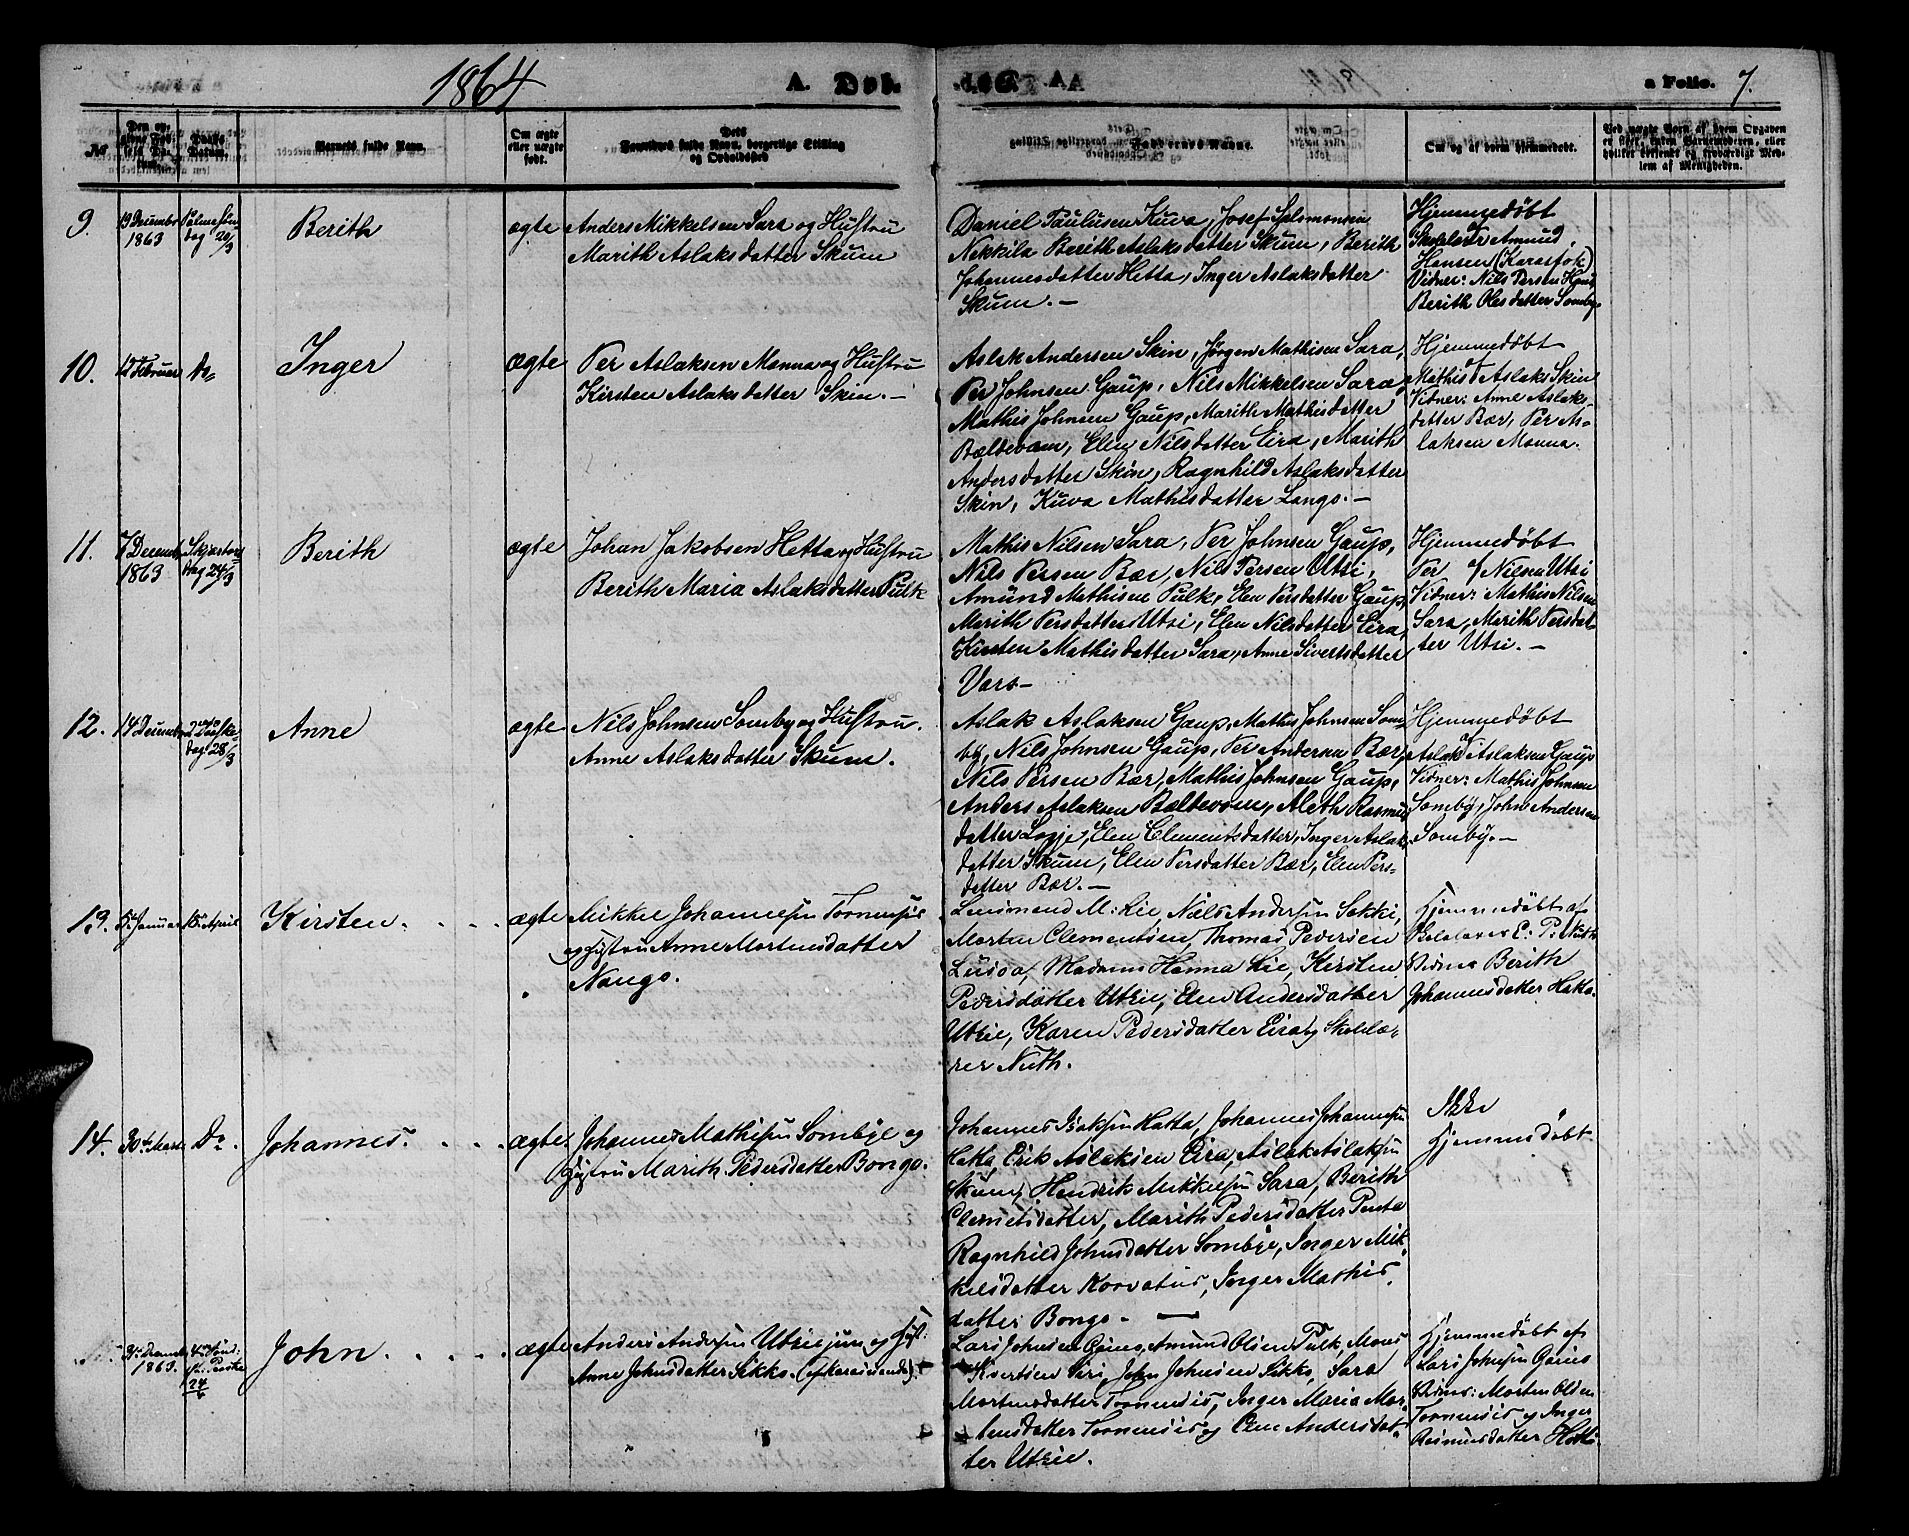 1864
A. Døb
a Folio. 7.
№
Daabs-Datum.
Barnets fulde Navn.
Om ægte eller uægte født.
Forældrenes fulde Navn, borgerlige Stilling og Opholdssted
Faddernes Navne.
Om og af hvem hjemmedøbt.
9.
19 Decembr
1863
Palmesøn
dag 20/3
Berith
ægte
Anders Mikkelsen Sara og Hustru
Marith Aslaksdatter Skum
Daniel Paulusen Kuva, Josef Salomonsen
Nekkila Berith Aslaksdatter Skum, Berith
Johannesdatter Hetta, Inger Aslaksdatter
Skum. —
Hjemmedøbt
af
Skolelær Amund
Hansen (Karasjok)
Vidner: Nils Persen
Berith Olesdatter Somby
10.
12 Februar
Do
Inger
ægte
Per Aslaksen Manna og Hustru
Kirsten Aslaksdatter Skin. —
Aslak Andersen Skin, Jørgen Mathisen Sara,
Per Johnsen Gaup, Nils Mikkelsen Sara,
Mathis Johnsen Gaup, Marith Mathisdatter
Bæltevom, Elen Nilsdatter Eira, Marith
Andersdatter Skin, Ragnhild Aslaksdatter
Skin, Kuva Mathisdatter Lango. —
Hjemmedøbt
af
Mathis Aslaks Skin
Vidner: Anne Aslaks-
datter Bær, Per As-
laksen Manna.
11.
7 Decembr
1863
Skjærtors
dag 24/3
Berith
ægte
Johan Jakobsen Hetta og Hustru
Berith Maria Aslaksdatter Pulk
Mathis Nilsen Sara, Per Johnsen Gaup,
Nils Persen Bær, Nils Persen Utsi,
Amund Mathisen Pulk, Elen Persdatter Gaup,
Marith Persdatter Utsi, Elen Nilsdatter Eira,
Kirsten Mathisdatter Sara, Anne Sivertsdatter
Vars—
Hjemmedøbt
Per af Nilsen Utsi
Vidner: Mathis Nilsen
Sara, Marith Persdat-
ter Utsi. —
12.
14 Decembr
2den Paaske
dag 28/3
Anne
ægte
Nils Johnsen Somby og Hustru.
Anne Aslaksdatter Skum.
Aslak Aslaksen Gaup, Mathis Johnsen Som
by, Nils Johnsen Gaup, Per Andersen Bær,
Nils Persen Bær, Mathis Johnsen Gaup,
Anders Aslaksen Bæltevom, Aleth Rasmus
datter Logje, Elen Clementsdatter, Inger Aslaks
datter Skum, Elen Persdatter Bær, Elen Pers-
datter Bær. —
Hjemmedøbt
af
Aslak Aslaksen Gaup
Vidner: Mathis Johnsen
Somby, John Andersen
Somby. —
13.
5te Januar
15de April
Kirsten.
ægte
Mikkel Johannesen Tornensis
og Hustru Anne Mortensdatter
Nango.
Lensmand M: Lie, Niels Andersen Sokki,
Morten Clementsen, Thomas Pedersen
Lusoa, Madame Hanna Lie, Kirsten
Pedersdatter Utzie, Elen Andersdatter
Utzie, Karen Pedersdatter Eira og Skolelæ-
rer Nuth.
Hjemmedøbt af
Skolelærer E: P: Nuth
Vidner Berith
Johannesdatter Hætta.
14.
30te Marts
Do.
Johannes.
ægte.
Johannes Mathisen Sombye og
Hustru Marith Pedersdatter Bongo.
Johannes Isaksen Hatta, Johannes Johannesen
Hatta, Erik Aslaksen Eira, Aslak Aslaksen
Skum, Hendrik Mikkelsen Sara, Berith
Clemetsdatter, Marith Pedersdatter Penta
Ragnhild Johnsdatter Sombye, Inger Mik-
kelsdatter Korvatus, Inger Mathis-
datter Bongo. —
Ikke
Hjemmedøbt
1863.
4de Sønd:
eft: Paaske
24/4
John.
ægte
Anders Andersen Utzie jun og Hust:
Anne Johnsdatter Sikko.
Lars Johnsen Gaino, Amund Olsen Pulk, Mons
Kvertsen Siri, John Johnsen Sikko, Sara
Mortensdatter Tornensis, Inger Maria Mor-
tensdatter Tornensis og Elen Andersdat-
ter Utzie.
Hjemmedøbt af
Lars Johnsen Gaino
Vidner: Morten Olsen
Tornensis og Inger
Rasmusdatter Hætta.